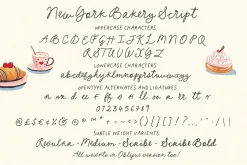 New York Bakery Script
UPPERCASE CHARACTERS
A B C D E F G H I J K L M N O P Q
R S T U V W X Y Z
LOWERCASE CHARACTERS
a b c d e f g h i j k l m n o p q r s t u v w x y z
OPENTYPE ALTERNATES AND LIGATURES
0 1 2 3 4 5 6 7 8 9
SUBTLE WEIGHT VARIENTS
Regular - Medium - Scribe - Scribe Bold
All weights in Oblique version too!